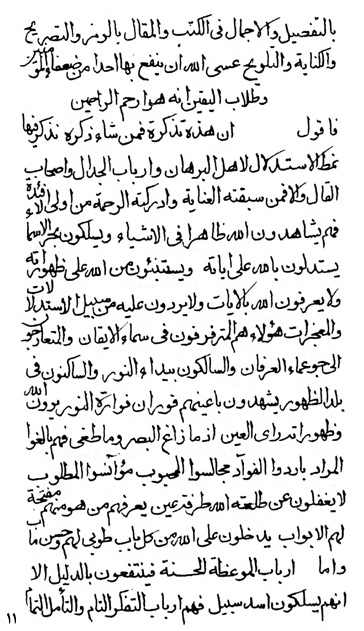 بالتفصيل والاجمال فى الكتب والمقال بالرمز والتصريح
والكناية والتلويح عسى الله أن ينفع بها احدا من ضعفاء المؤمنين
وطلاب اليقين انه هو ارحم الراحمين
فاقول ان هذه تذكرة فمن شاء ذكره نذكر فيها
نمط الاستدلال لاهل البرهان وارباب الجدال واصحاب
القال والا فمن سبقته العناية وادركته الرحمة من اولى الافئدة
فهم يشاهدون الله ظاهرا فى الاشياء ويسلكون بحر الاسماء
يستدلون بالله على اياته ويستنبئون من الله على ظهوراته
ولا يعرفون الله بالايات ولا يردون عليه من سبيل الاستدلالات
والمعجزات هؤلاء هم المترفرفون فى سماء الايقان والمتعارجون
الى جو عماء العرفان والسالكون بيداء النور والساكنون فى
بلد الظهور يشهدون باعينهم فوران فوارة النور يرون الله
وظهوراته رأى العين اذ ما زاغ البصر وما طغى فهم بالغوا
المراد باردوا الفوآد مجالسوا المحبوب مؤانسوا المطلوب
لا يغفلون عن طلعته الله طرفة عين يعرفهم من هو منهم مفتحة
لهم الابواب يدخلون على الله من كل باب طوبى لهم وحسن مآب
واما ارباب الموعظة الحسنة فينتفعون بالدليل الا
انهم يسلكون اسد سبيل فهم ارباب التفكر التام والتأمل التمام
١١